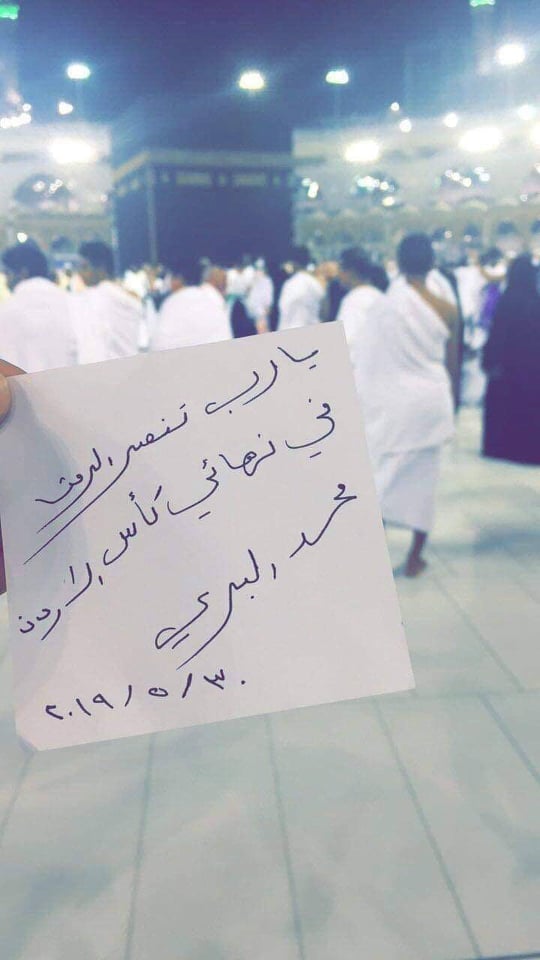 يا رب تنصر الرمثا
في نهائي كأس الاردن
محمد البري
٢٠١٩/٥/٣٠